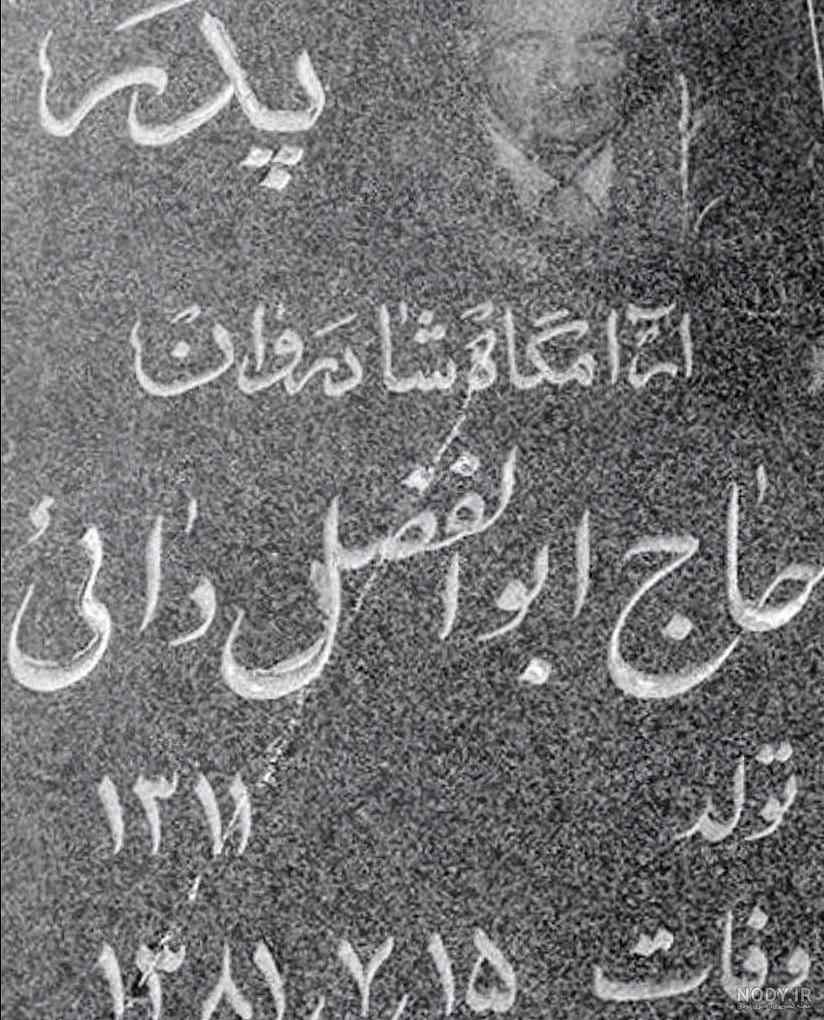 پدر
آرامگاه شادروان
حاج ابوالفضل دائی
تولد ۱۳۱۱
وفات ۱۳۸۱٫۷٫۱۵
NODY.IR